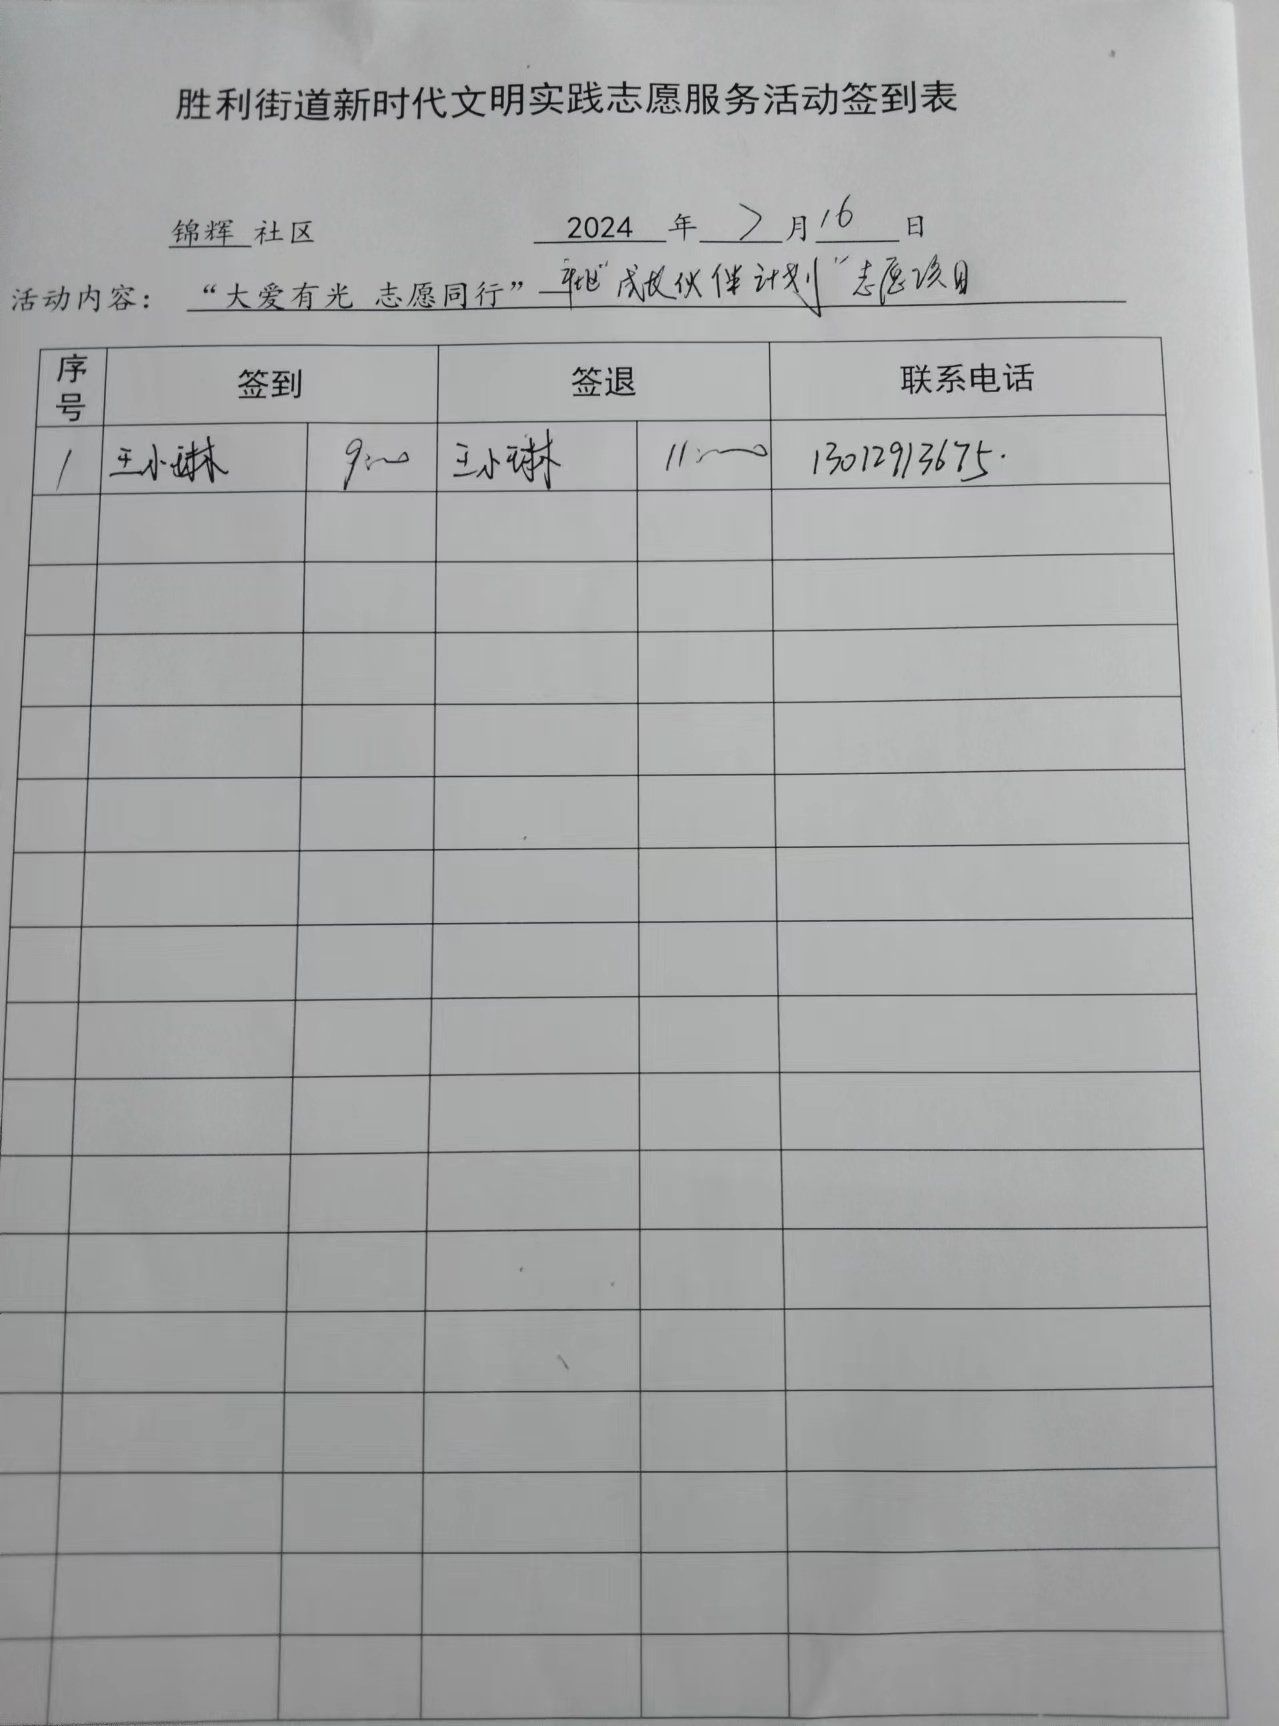 胜利街道新时代文明实践志愿服务活动签到表
锦辉 社区 2024 年 7 月 16 日
活动内容： “大爱有光 志愿同行” “成长伙伴计划”志愿项目
序号 签到 签退 联系电话
1 王小琳 9:00 王小琳 11:00 13012913675.